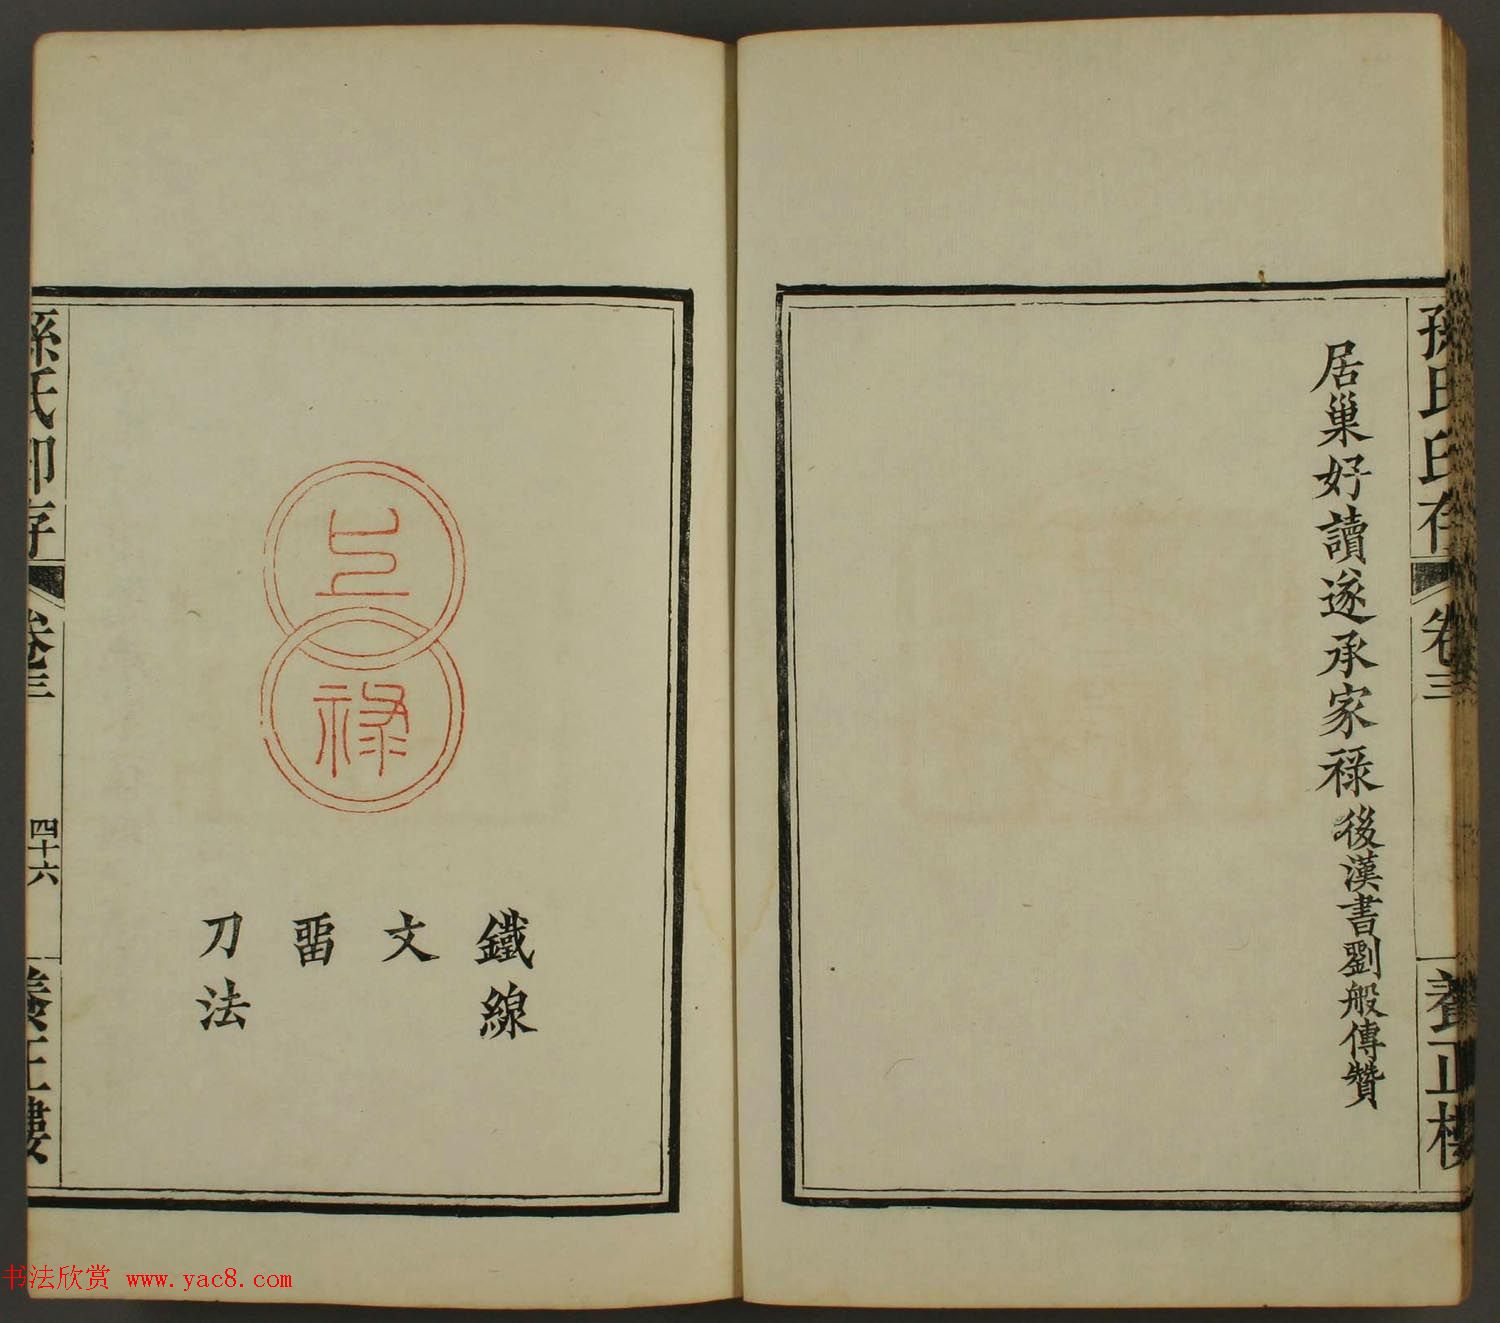 孫氏印存
卷三
養正樓
居巢好讀遂承家祿後漢書劉般傳贊
祿
鐵線
文
畱
刀法
孫氏印存
卷三
四十六
養正樓
书法欣赏 www.yac8.com